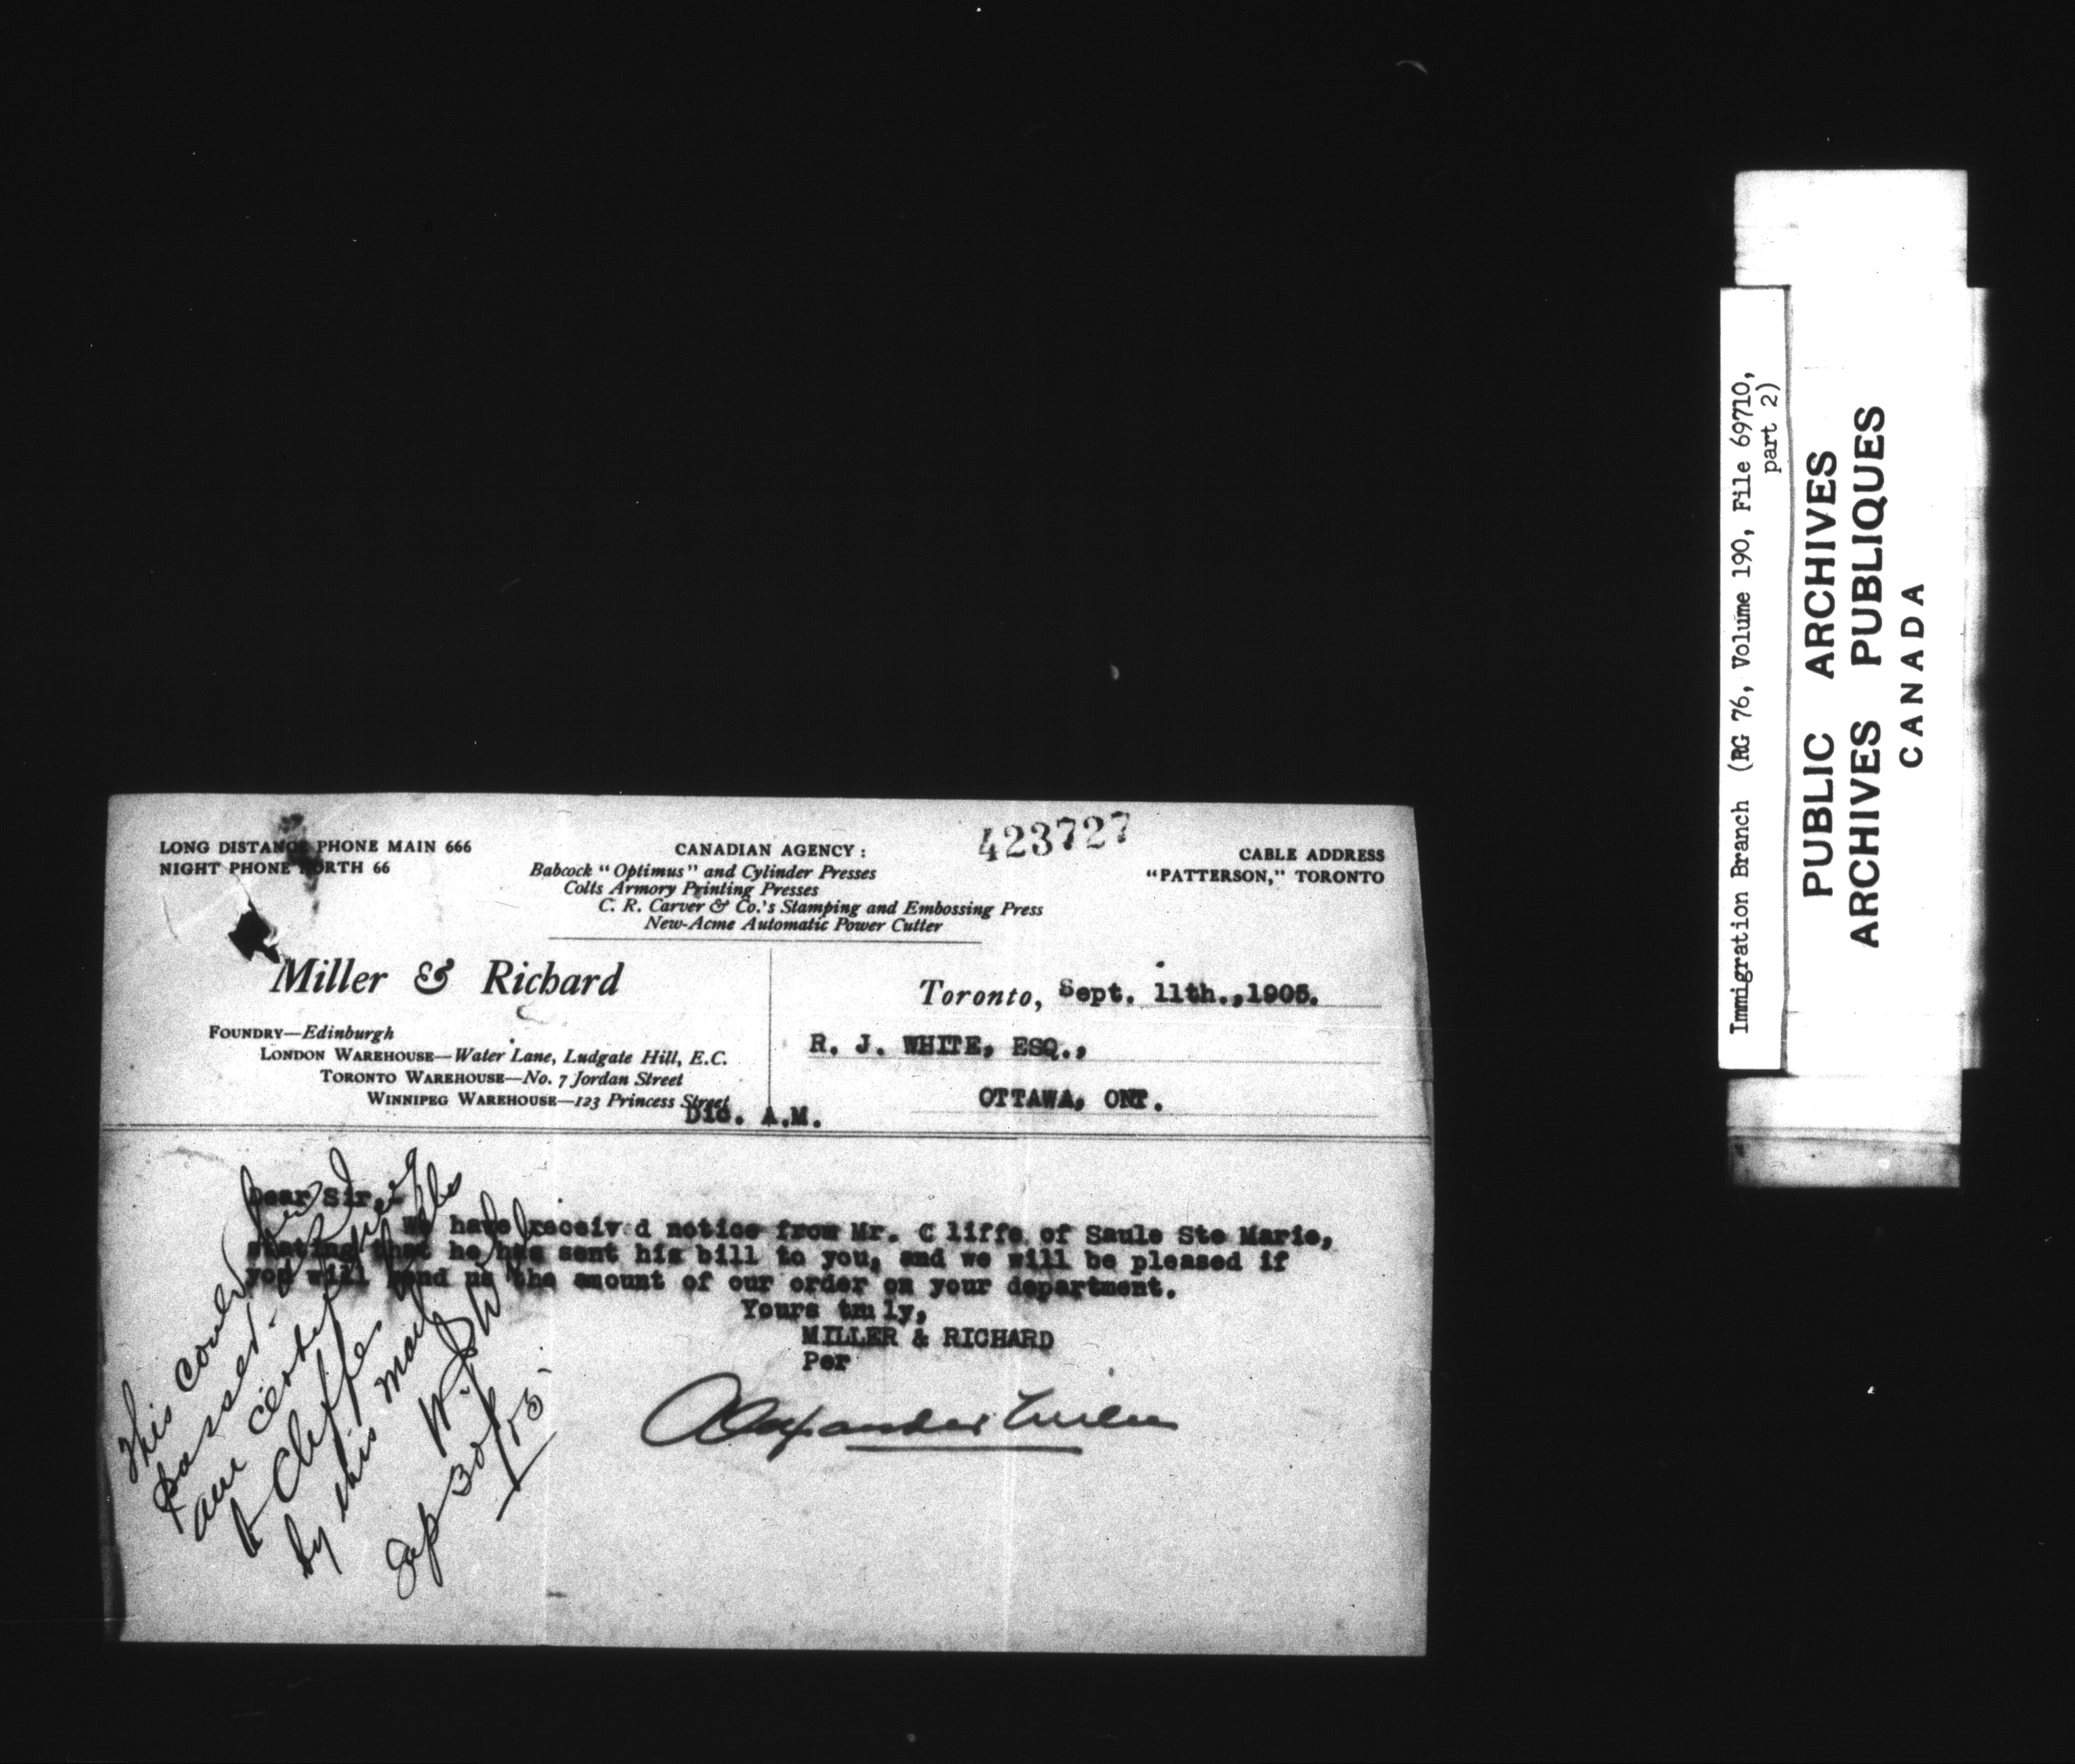 423727
LONG DISTANCE PHONE MAIN 666
NIGHT PHONE NORTH 66
CANADIAN AGENCY:
Babcock "Optimus" and Cylinder Presses
Colts Armory Printing Presses
C. R. Carver & Co.'s Stamping and Embossing Press
New-Acme Automatic Power Cutter
CABLE ADDRESS
"PATTERSON," TORONTO
Miller & Richard
FOUNDRY—Edinburgh
LONDON WAREHOUSE—Water Lane, Ludgate Hill, E.C.
TORONTO WAREHOUSE—No. 7 Jordan Street
WINNIPEG WAREHOUSE—123 Princess Street
Dic. A.M.
Toronto, Sept. 11th.,1905.
R. J. WHITE, ESQ.,
OTTAWA, ONT.
Dear Sir,-
We have receiv d notice from Mr. C liffe of Saule Ste Marie,
stating that he has sent his bill to you, and we will be pleased if
you will send us the amount of our order on your department.
Yours tru ly,
MILLER & RICHARD
Per
Alexander
This could
passed.
am
Cliffe
by this mail
W.J. White
Sep 30/05
Immigration Branch (RG 76, Volume 190, File 69710,
part 2)
PUBLIC ARCHIVES
ARCHIVES PUBLIQUES
CANADA